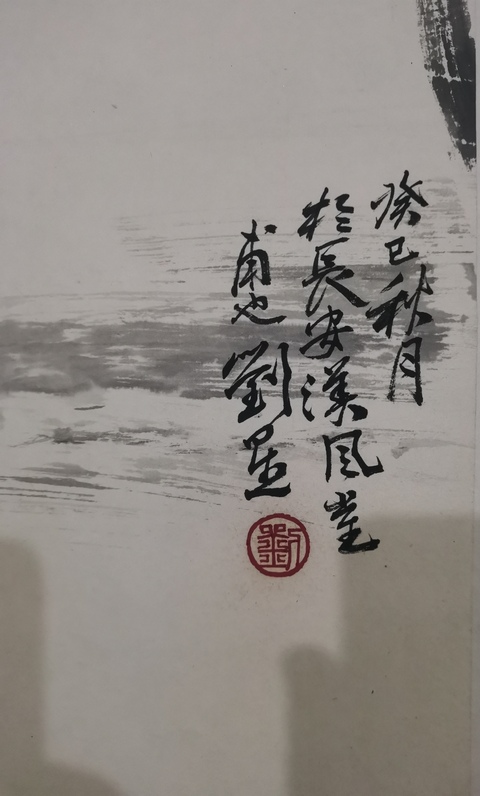 癸巳秋月
於長安漢風堂
甫也劉星
劉